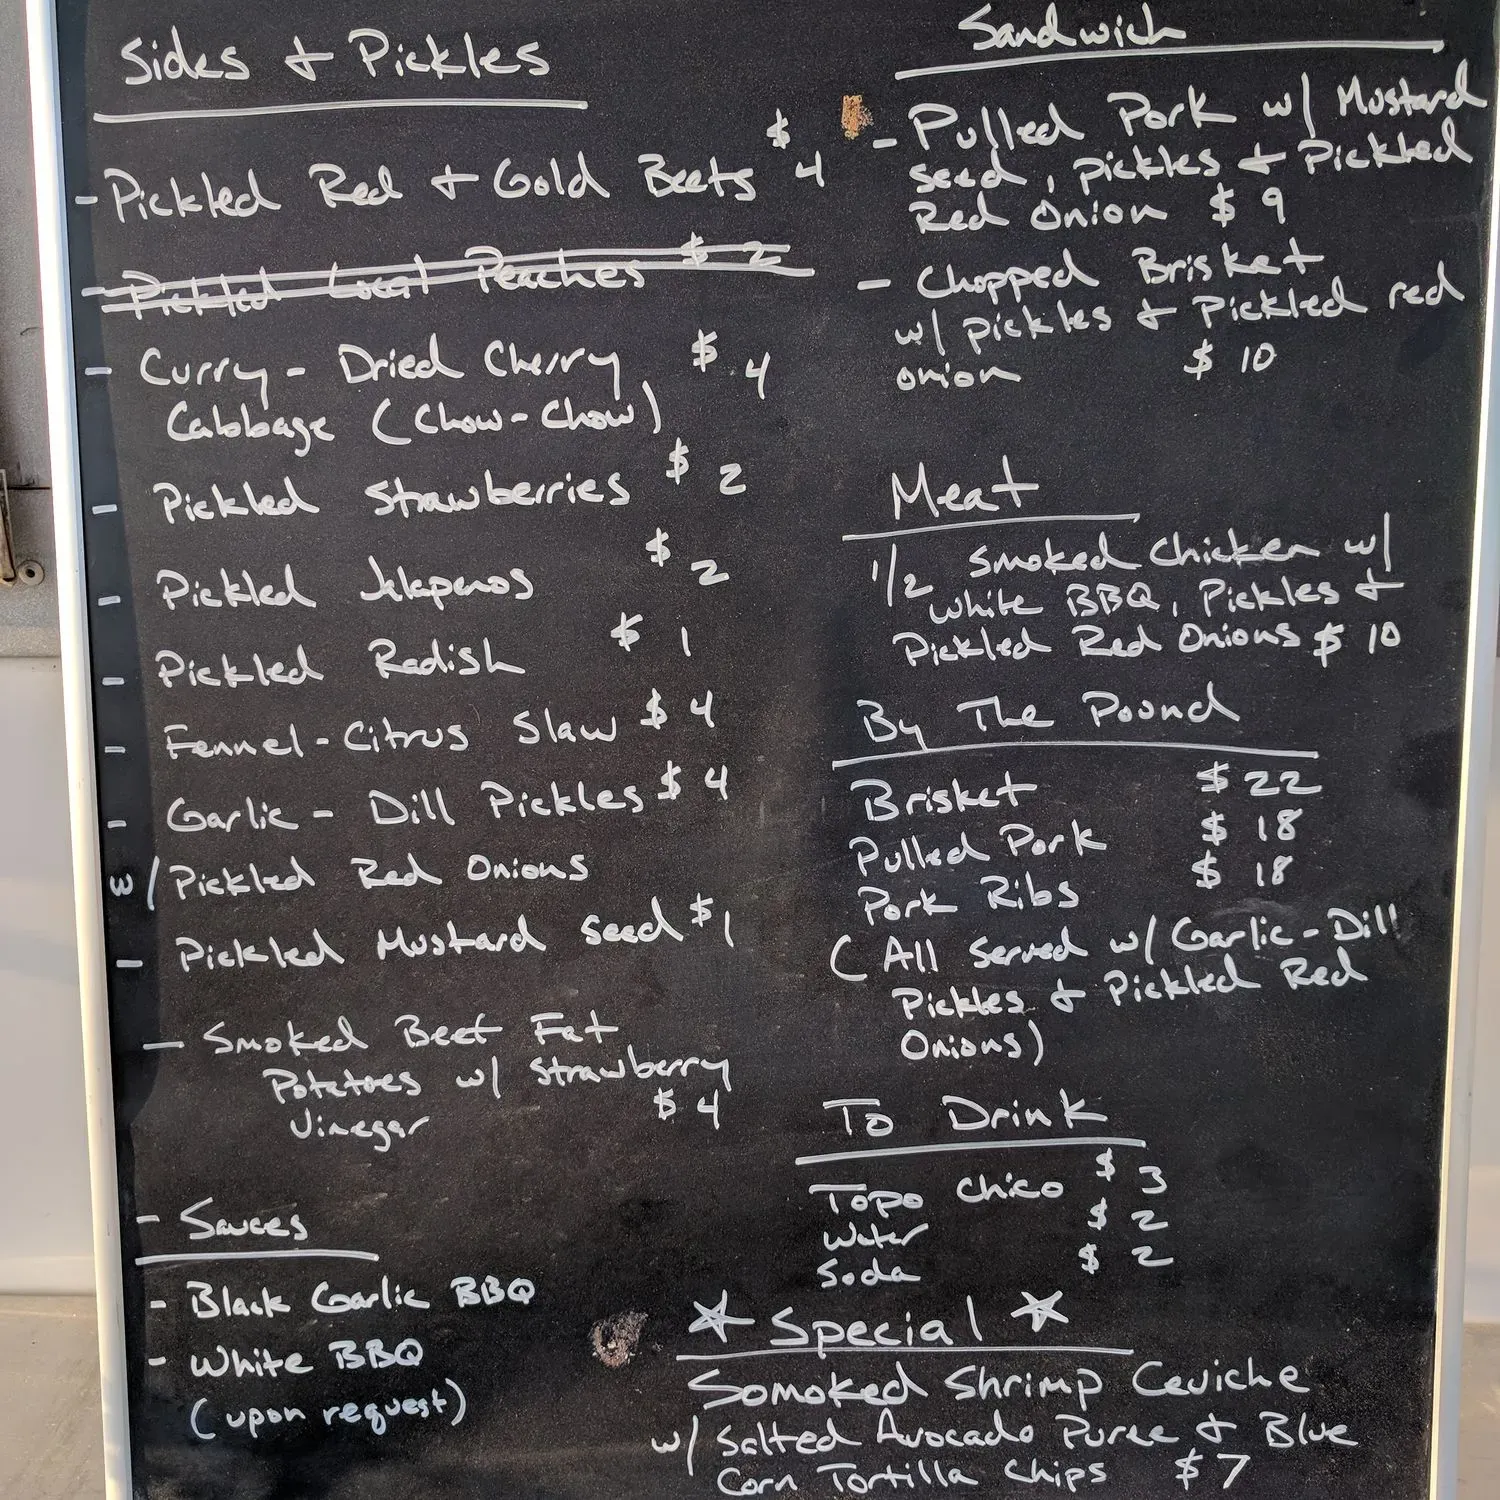 Sides + Pickles
- Pickled Red + Gold Beets $4
- Pickled Local Peaches $2
- Curry-Dried Cherry $4
Cabbage (Chow-Chow)
- Pickled Strawberries $2
- Pickled Jalapenos $2
- Pickled Radish $1
- Fennel-Citrus Slaw $4
- Garlic-Dill Pickles $4
w/ Pickled Red Onions
- Pickled Mustard Seed $1
- Smoked Beef Fat
Potatoes w/ Strawberry
Vinegar $4
- Sauces
- Black Garlic BBQ
- White BBQ
(upon request)
Sandwich
- Pulled Pork w/ Mustard
seed, pickles + Pickled
Red Onion $9
- Chopped Brisket
w/ pickles + Pickled red
onion $10
Meat
1/2 Smoked Chicken w/
White BBQ, Pickles +
Pickled Red Onions $10
By The Pound
Brisket $22
Pulled Pork $18
Pork Ribs $18
(All Served w/ Garlic-Dill
Pickles + Pickled Red
Onions)
To Drink
Topo Chico $3
Water $2
Soda $2
☆ Special ☆
Somoked Shrimp Ceviche
w/ Salted Avocado Puree + Blue
Corn Tortilla Chips $7